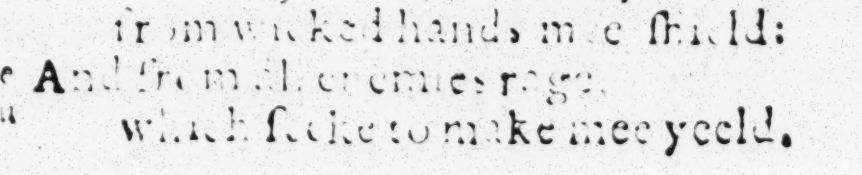 from wicked hands mee ſhield:
e And from all enemies rage,
u which ſeeke to make mee yeeld.